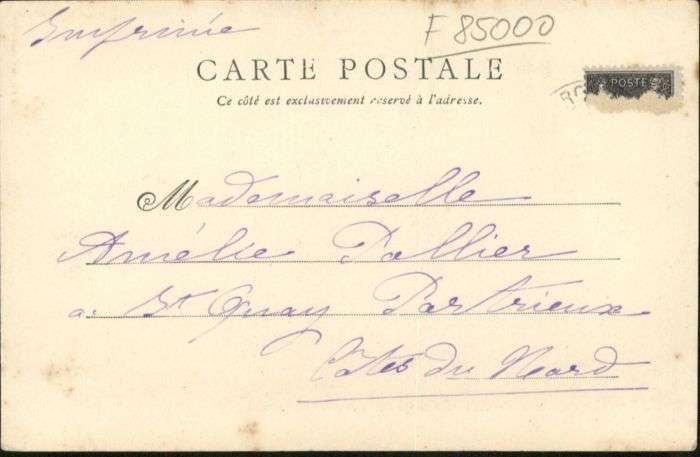 Imprimée
F 85000
CARTE POSTALE
POSTES
Ce côté est exclusivement réservé à l'adresse.
Mademoiselle
Amélie Pallier
à St Quay Portrieux
Côtes du Nord